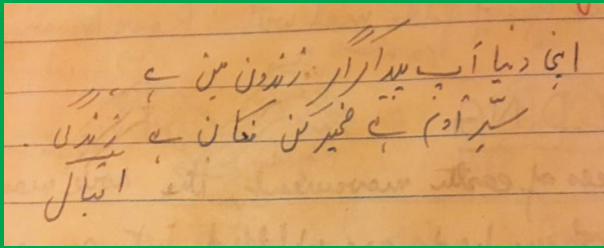 اپنی دنیا آپ پیدا کر اگر زندوں میں ہے
سرِّ آدم ہے ضمیر کن فکاں ہے زندگی
اقبال